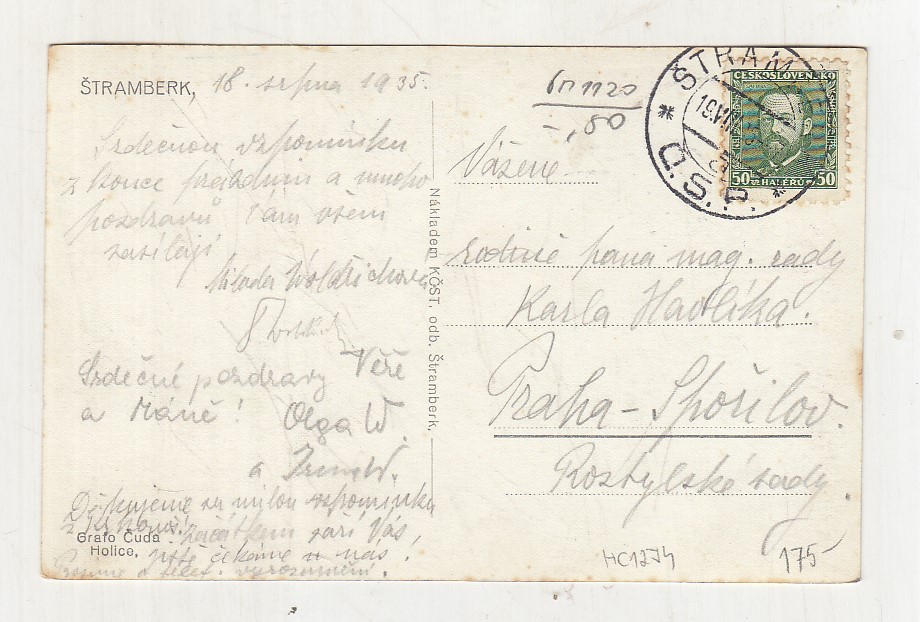 ŠTRAMBERK, 18. srpna 1935.
Srdečnou vzpomínku
z konce prázdnin a mnoho
pozdravů Vám všem
zasílají
Milada Woldřichová
Srdečné pozdravy Věře
a Máně! Olga W.
a
Děkujeme za milou vzpomínku
z
začátkem září Vás
čekáme u nás!
Prosíme o telef. vyrozumění.
Grafo Čuda
Holice,
Nákladem KČST, odb. Štramberk.
,80
ŠTRAMBERK
Č.S.P.
ČESKOSLOVENSKO
50 HALÉŘŮ 50
Vážené
rodině pana mag. rady
Karla Havlíka.
Praha – Spořilov.
Roztylské sady.
HC1274
175-